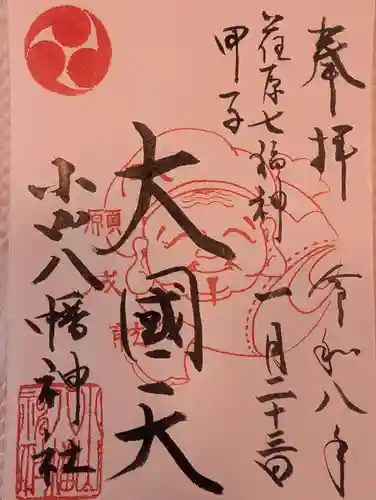 奉拝
令和八年
一月二十三日
荏原七福神
甲子
大國天
願成就
小山八幡神社